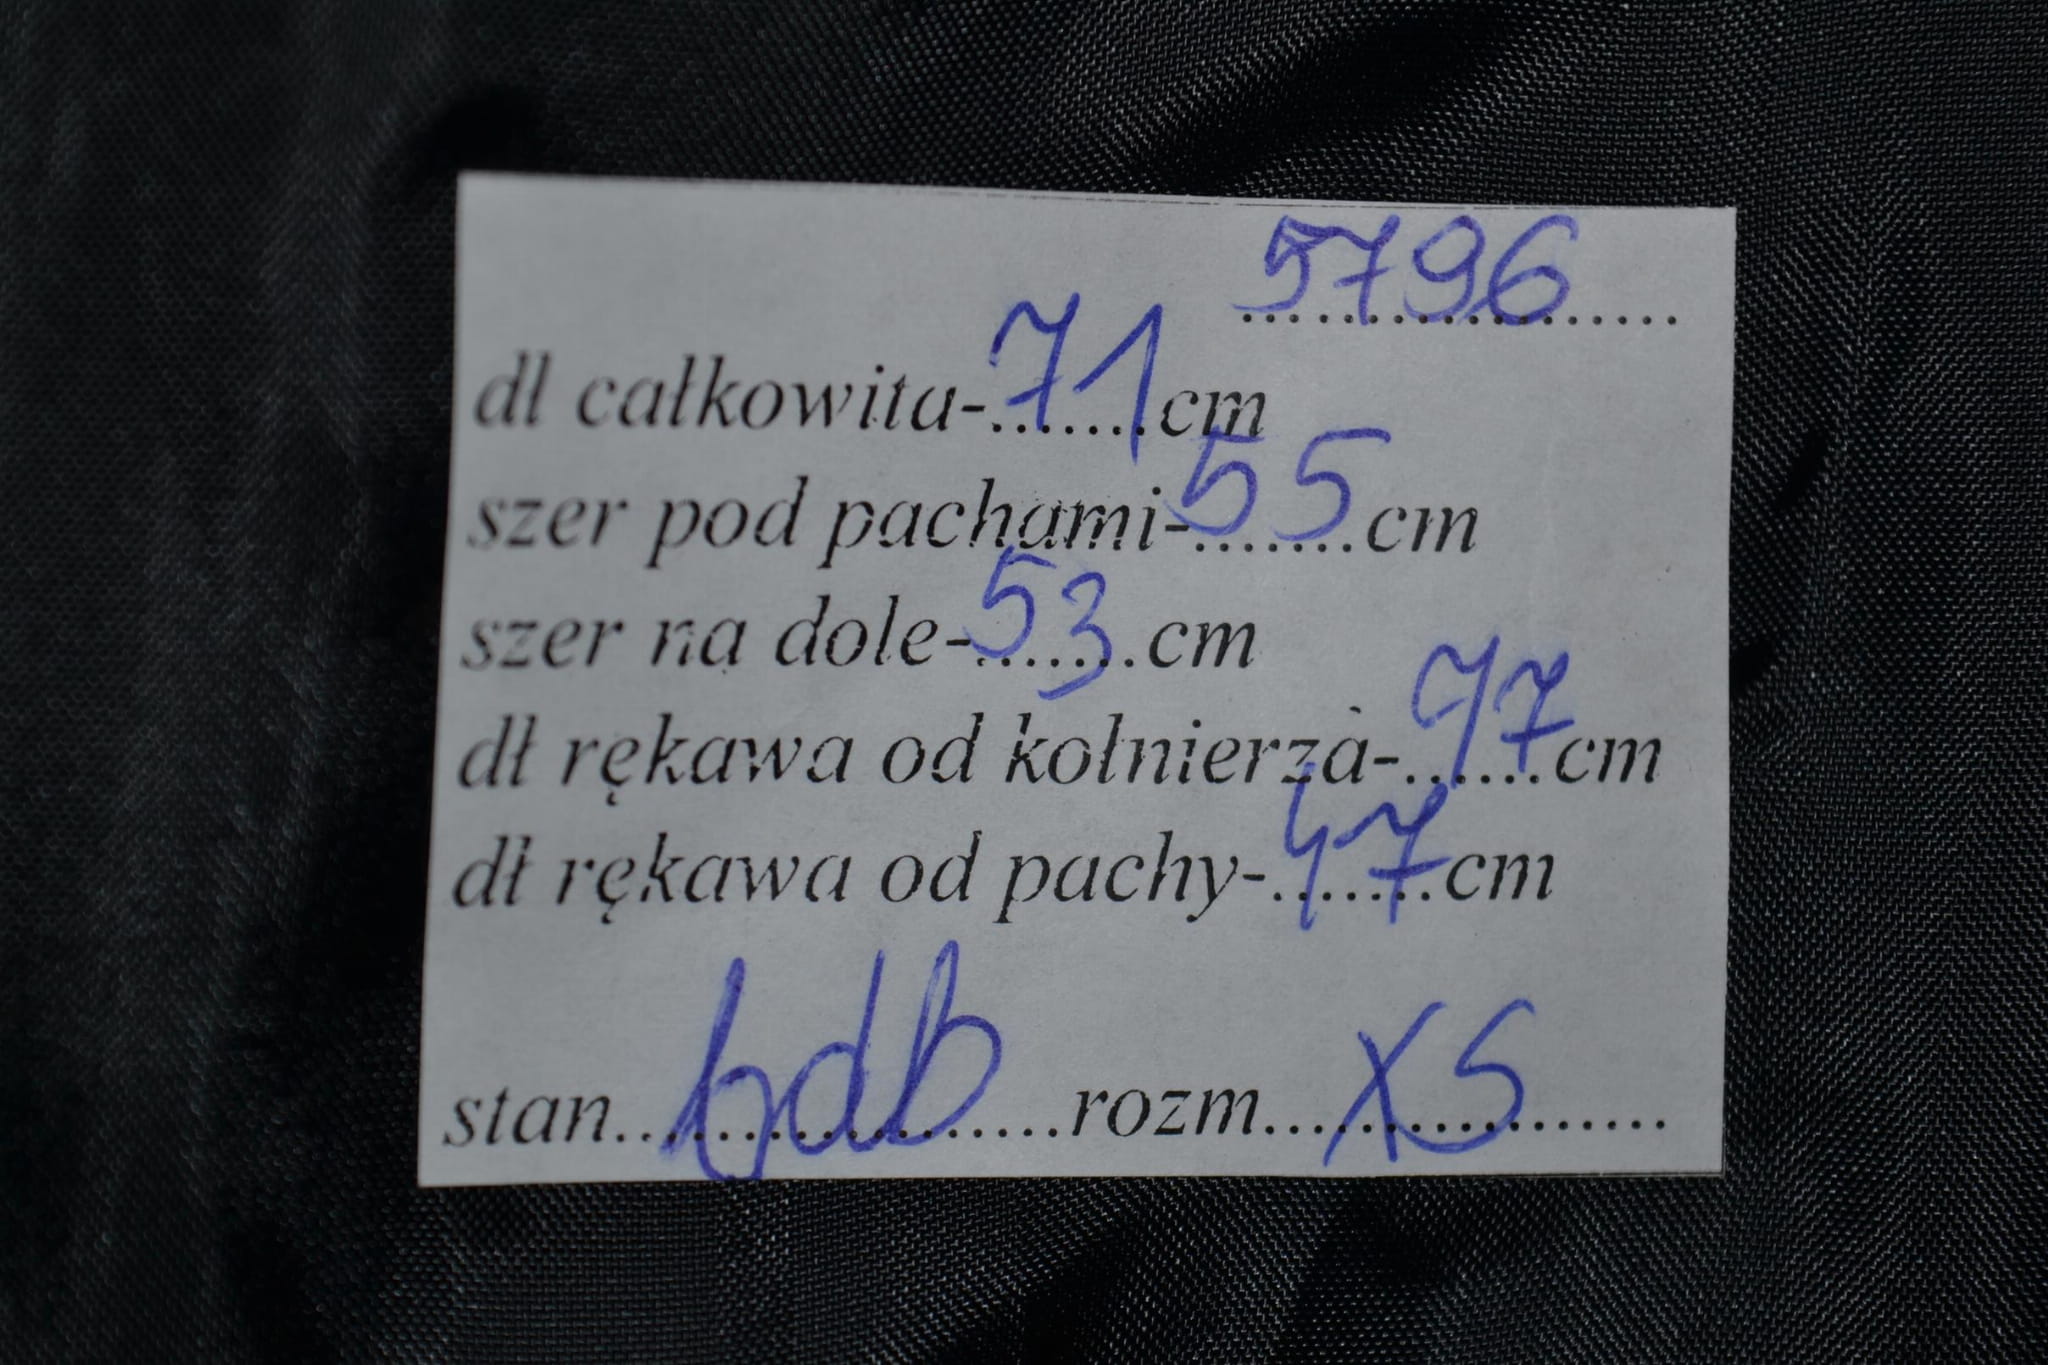 5796
dł całkowita-71cm
szer pod pachami-55cm
szer na dole-53cm
dł rękawa od kołnierza-77cm
dł rękawa od pachy-47cm
stan bdb rozm XS